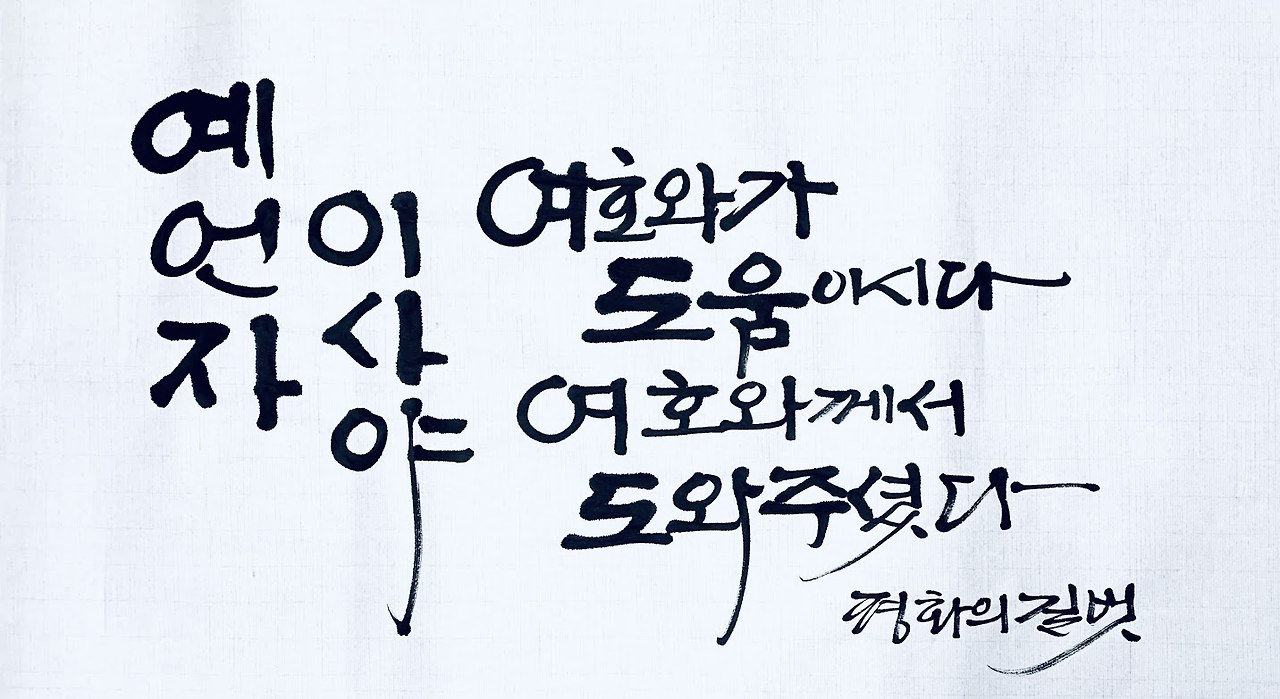 예언자
이사야
여호와가
도움이시다
여호와께서
도와주셨다
평화의길벗